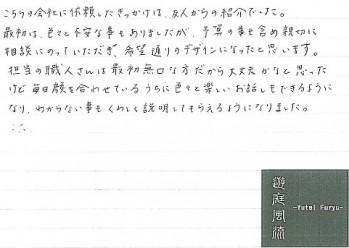 こちらの会社に依頼したきっかけは、友人からの紹介でした。
最初は、色々と不安な事もありましたが、予算の事も含め親切に
相談にのっていただき、希望通りのデザインになったと思います。
担当の職人さんは最初無口な方だから大丈夫かなと思った
けど毎日顔を合わせているうちに色々と楽しいお話しもできるように
なり、わからない事もくわしく説明してもらえるようになりました。
遊庭風流
-Yutei Furyu-